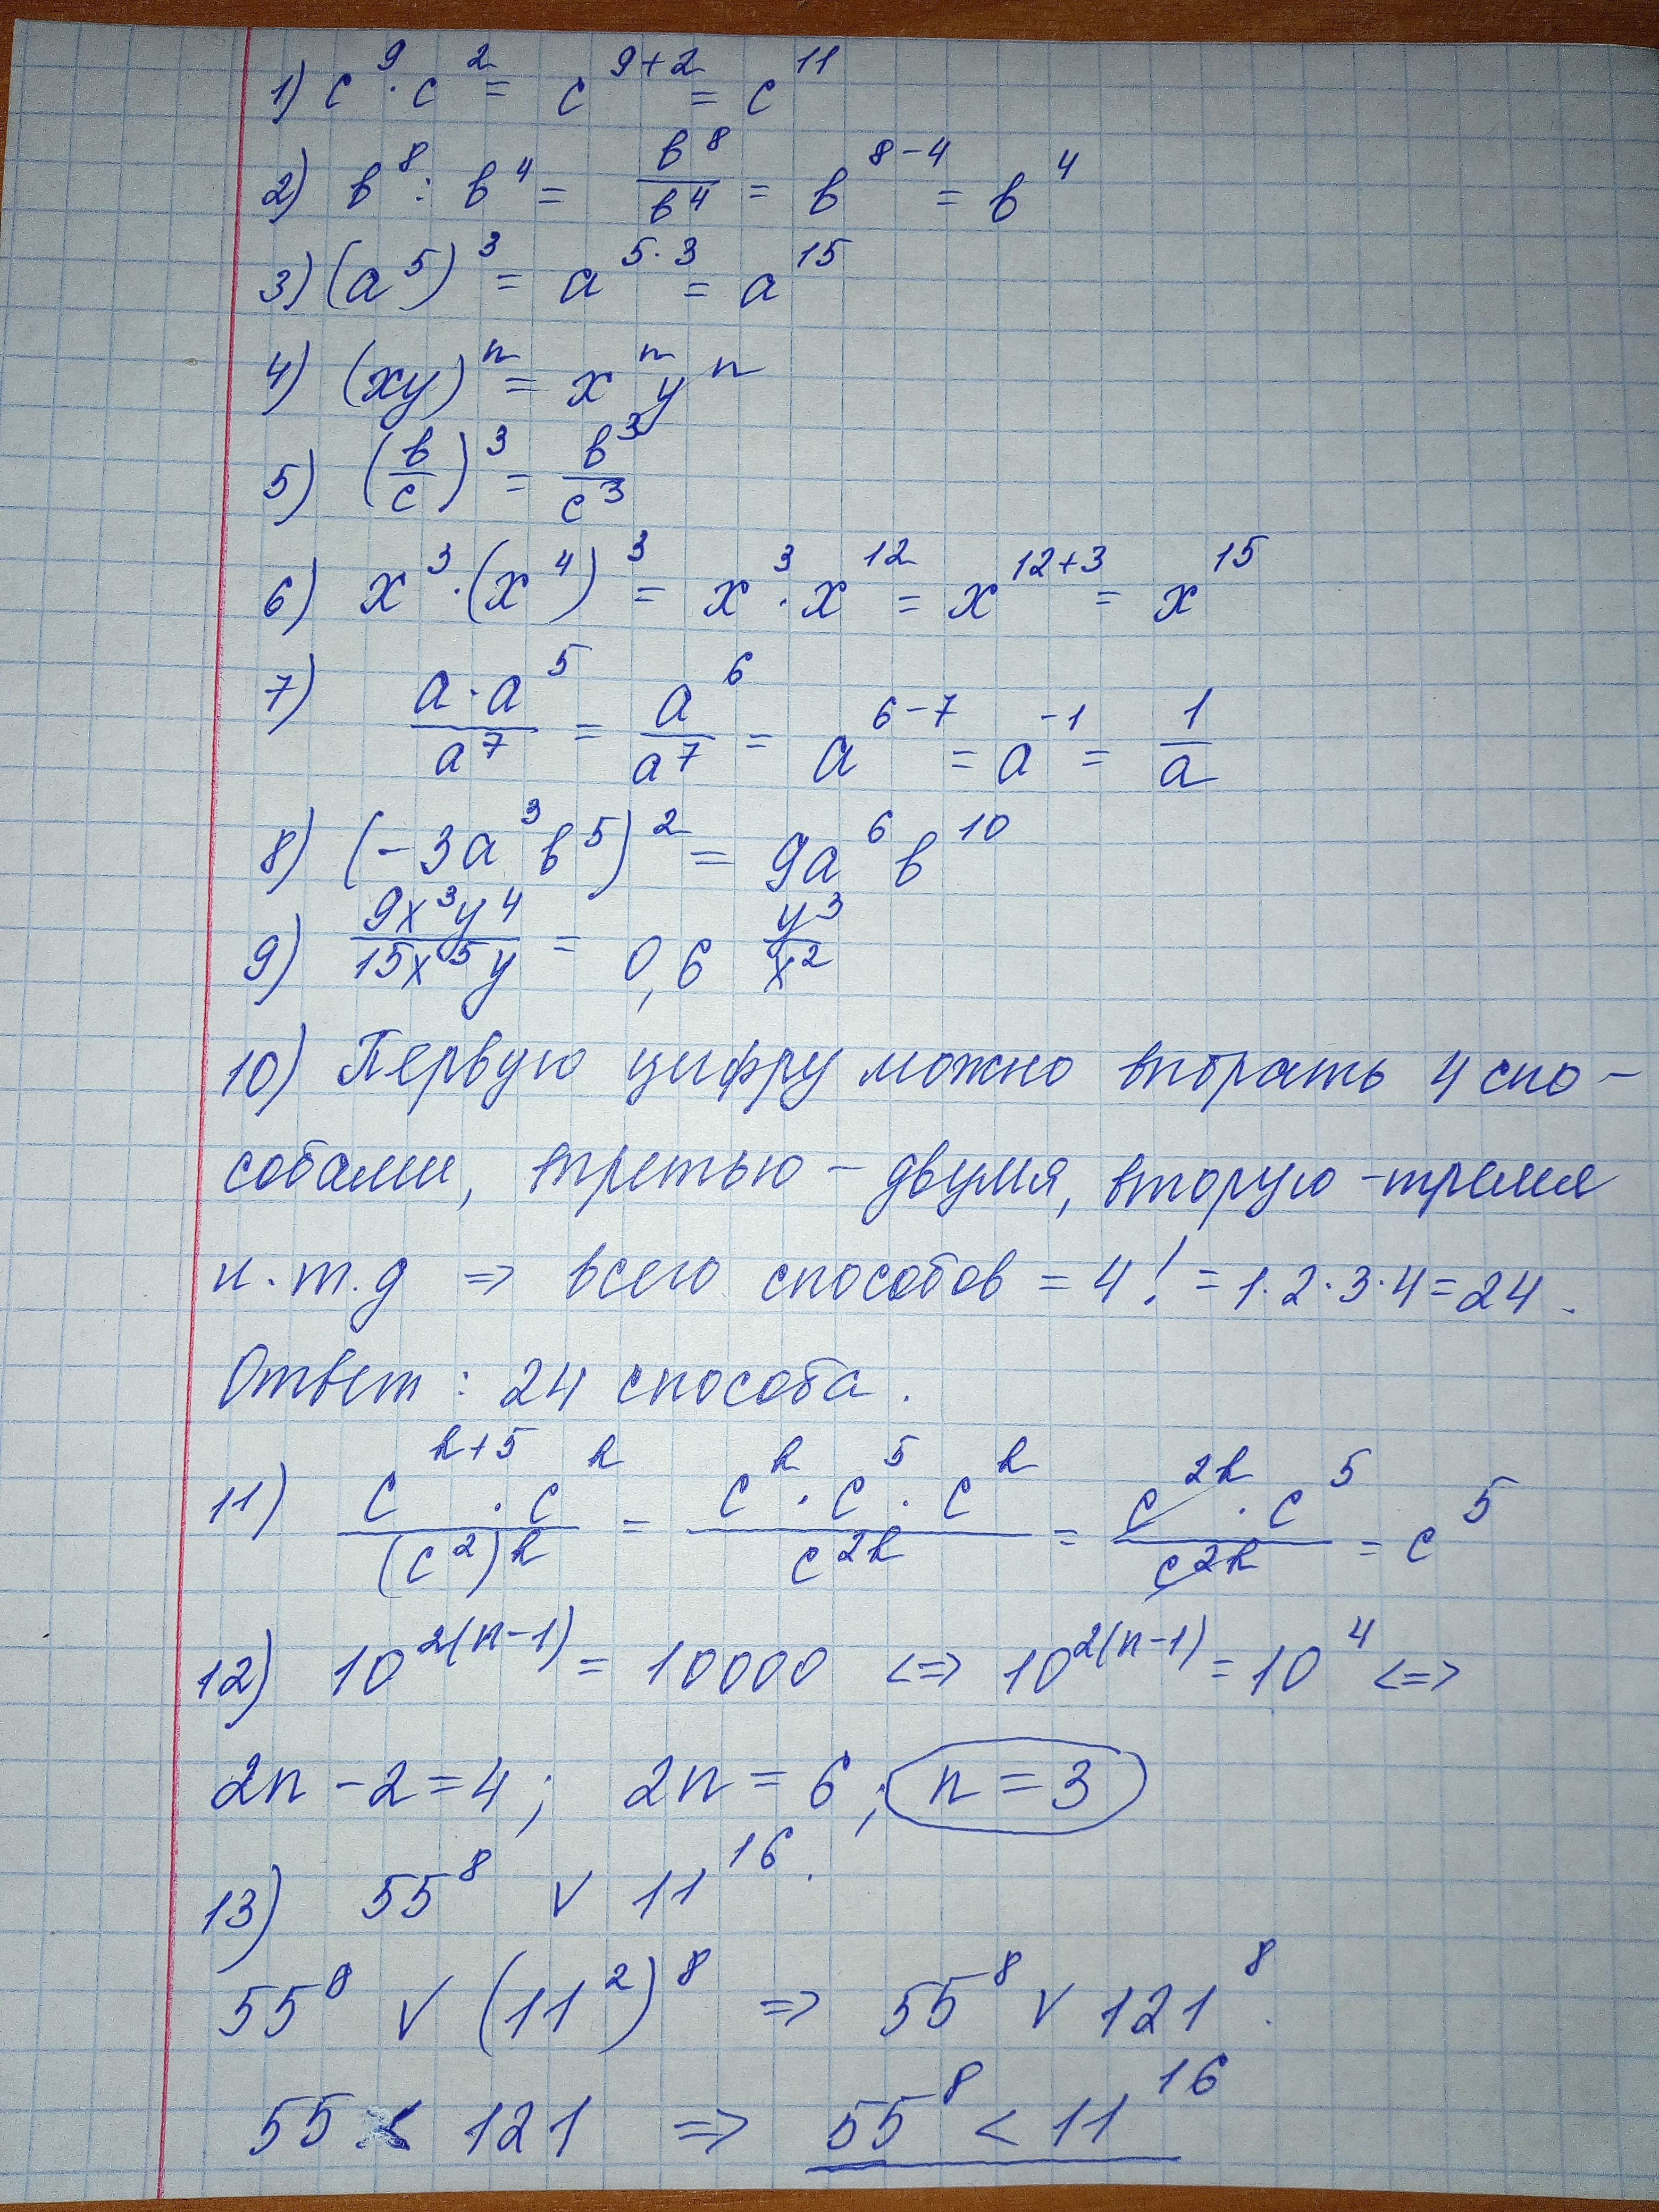 1) c⁹ · c² = c⁹⁺² = c¹¹
2) в⁸ : в⁴ = в⁸/в⁴ = в⁸⁻⁴ = в⁴
3) (a⁵)³ = a⁵·³ = a¹⁵
4) (xy)ⁿ = xⁿyⁿ
5) (в/c)³ = в³/c³
6) x³ · (x⁴)³ = x³ · x¹² = x¹²⁺³ = x¹⁵
7) a · a⁵/a⁷ = a⁶/a⁷ = a⁶⁻⁷ = a⁻¹ = 1/a
8) (-3a³в⁵)² = 9a⁶в¹⁰
9) 9x³y⁴/15x⁵y = 0,6 y³/x²
10) Первую цифру можно выбрать 4 спо-
собами, третью - двумя, вторую - тремя
и.т.д => всего способов = 4! = 1·2·3·4 = 24.
Ответ: 24 способа.
11) cᵏ⁺⁵ · cᵏ/(c²)ᵏ = cᵏ · c⁵ · cᵏ/c²ᵏ = c²ᵏ · c⁵/c²ᵏ = c⁵
12) 10²⁽ⁿ⁻¹⁾ = 10000 <=> 10²⁽ⁿ⁻¹⁾ = 10⁴ <=>
2n - 2 = 4; 2n = 6; n = 3
13) 55⁸ ∨ 11¹⁶.
55⁸ ∨ (11²)⁸ => 55⁸ ∨ 121⁸.
55 < 121 => 55⁸ < 11¹⁶